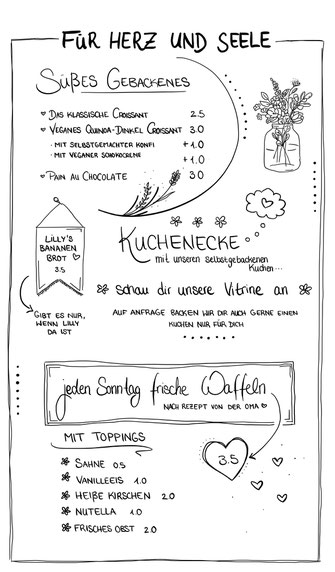 FÜR HERZ UND SEELE
SÜßES GEBACKENES
DAS KLASSISCHE CROISSANT 2.5
VEGANES QUINOA-DINKEL CROISSANT 3.0
· MIT SELBSTGEMACHTER KONFI + 1.0
· MIT VEGANER SCHOKOCREME + 1.0
PAIN AU CHOCOLATE 3.0
LILLY'S
BANANEN
BROT
3.5
GIBT ES NUR,
WENN LILLY
DA IST
KUCHENECKE
mit unseren selbstgebackenen
Kuchen...
schau dir unsere Vitrine an
AUF ANFRAGE BACKEN WIR DIR AUCH GERNE EINEN
KUCHEN NUR FÜR DICH
jeden Sonntag frische Waffeln
NACH REZEPT VON DER OMA
3.5
MIT TOPPINGS
SAHNE 0.5
VANILLEEIS 1.0
HEIßE KIRSCHEN 2.0
NUTELLA 1.0
FRISCHES OBST 2.0